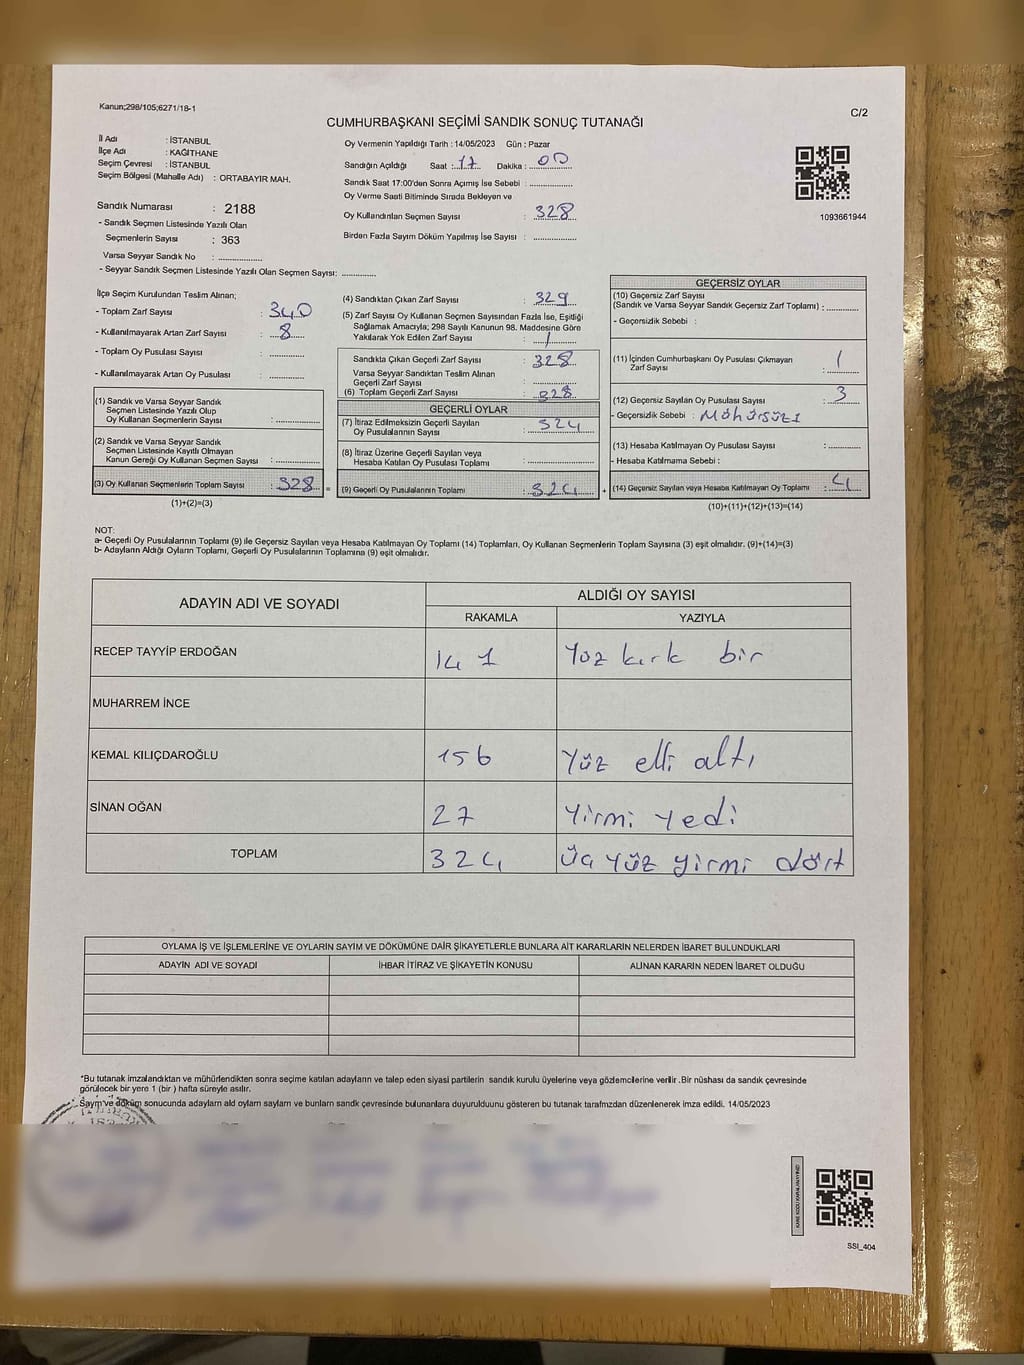 Kanun;298/105;6271/18-1
C/2
CUMHURBAŞKANI SEÇİMİ SANDIK SONUÇ TUTANAĞI
İl Adı : İSTANBUL
İlçe Adı : KAĞITHANE
Seçim Çevresi : İSTANBUL
Seçim Bölgesi (Mahalle Adı) : ORTABAYIR MAH.
Sandık Numarası : 2188
- Sandık Seçmen Listesinde Yazılı Olan
Seçmenlerin Sayısı : 363
Varsa Seyyar Sandık No : ....................
- Seyyar Sandık Seçmen Listesinde Yazılı Olan Seçmen Sayısı: ..............
Oy Vermenin Yapıldığı Tarih : 14/05/2023 Gün : Pazar
Sandığın Açıldığı Saat : 17 Dakika : 00
Sandık Saat 17:00'den Sonra Açımış İse Sebebi : ....................
Oy Verme Saati Bitiminde Sırada Bekleyen ve
Oy Kullandırılan Seçmen Sayısı : 328
Birden Fazla Sayım Döküm Yapılmış İse Sayısı : ..............
1093661944
İlçe Seçim Kurulundan Teslim Alınan;
- Toplam Zarf Sayısı : 340
- Kullanılmayarak Artan Zarf Sayısı : 8
- Toplam Oy Pusulası Sayısı : ..............
- Kullanılmayarak Artan Oy Pusulası : ..............
(1) Sandık ve Varsa Seyyar Sandık
Seçmen Listesinde Yazılı Olup
Oy Kullanan Seçmenlerin Sayısı : ..............
(2) Sandık ve Varsa Seyyar Sandık
Seçmen Listesinde Kayıtlı Olmayan
Kanun Gereği Oy Kullanan Seçmen Sayısı : ..............
(3) Oy Kullanan Seçmenlerin Toplam Sayısı : 328 =
(1)+(2)=(3)
(4) Sandıktan Çıkan Zarf Sayısı : 329
(5) Zarf Sayısı Oy Kullanan Seçmen Sayısından Fazla İse, Eşitliği
Sağlamak Amacıyla; 298 Sayılı Kanunun 98. Maddesine Göre
Yakılarak Yok Edilen Zarf Sayısı : 1
Sandıkta Çıkan Geçerli Zarf Sayısı : 328
Varsa Seyyar Sandıktan Teslim Alınan
Geçerli Zarf Sayısı : ..............
(6) Toplam Geçerli Zarf Sayısı : 328
GEÇERLİ OYLAR
(7) İtiraz Edilmeksizin Geçerli Sayılan
Oy Pusulalarının Sayısı : 324
(8) İtiraz Üzerine Geçerli Sayılan veya
Hesaba Katılan Oy Pusulası Toplamı : ..............
(9) Geçerli Oy Pusulalarının Toplamı : 324 +
GEÇERSİZ OYLAR
(10) Geçersiz Zarf Sayısı
(Sandık ve Varsa Seyyar Sandık Geçersiz Zarf Toplamı) : ..............
- Geçersizlik Sebebi :
(11) İçinden Cumhurbaşkanı Oy Pusulası Çıkmayan
Zarf Sayısı : 1
(12) Geçersiz Sayılan Oy Pusulası Sayısı : 3
- Geçersizlik Sebebi : Möhürsüz
(13) Hesaba Katılmayan Oy Pusulası Sayısı : ..............
- Hesaba Katılmama Sebebi :
(14) Geçersiz Sayılan veya Hesaba Katılmayan Oy Toplamı : 4
(10)+(11)+(12)+(13)=(14)
NOT:
a- Geçerli Oy Pusulalarının Toplamı (9) ile Geçersiz Sayılan veya Hesaba Katılmayan Oy Toplamı (14) Toplamları, Oy Kullanan Seçmenlerin Toplam Sayısına (3) eşit olmalıdır. (9)+(14)=(3)
b- Adayların Aldığı Oyların Toplamı, Geçerli Oy Pusulalarının Toplamına (9) eşit olmalıdır.
ADAYIN ADI VE SOYADI
ALDIĞI OY SAYISI
RAKAMLA YAZIYLA
RECEP TAYYİP ERDOĞAN 141 Yüz kırk bir
MUHARREM İNCE
KEMAL KILIÇDAROĞLU 156 Yüz elli altı
SİNAN OĞAN 27 Yirmi Yedi
TOPLAM 324 Üç yüz yirmi dört
OYLAMA İŞ VE İŞLEMLERİNE VE OYLARIN SAYIM VE DÖKÜMÜNE DAİR ŞİKAYETLERLE BUNLARA AİT KARARLARIN NELERDEN İBARET BULUNDUKLARI
ADAYIN ADI VE SOYADI İHBAR İTİRAZ VE ŞİKAYETİN KONUSU ALINAN KARARIN NEDEN İBARET OLDUĞU
*Bu tutanak imzalandıktan ve mühürlendikten sonra seçime katılan adayların ve talep eden siyasi partilerin sandık kurulu üyelerine veya gözlemcilerine verilir .Bir nüshası da sandık çevresinde
görülecek bir yere 1 (bir ) hafta süreyle asılır.
Sayım ve döküm sonucunda adayların ald oyların sayların ve bunların sandk çevresinde bulunanlara duyurulduunu gösteren bu tutanak tarafmzdan düzenlenerek imza edildi. 14/05/2023
SSI_404